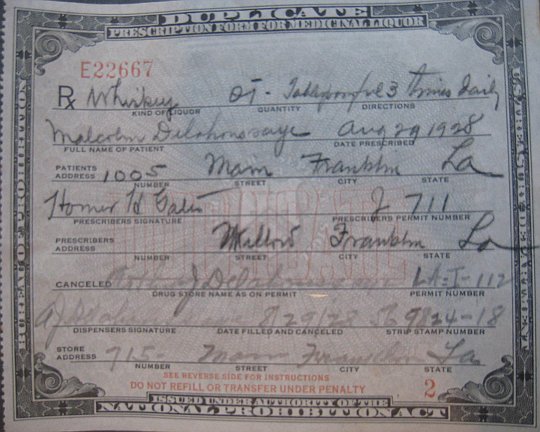 DUPLICATE
PRESCRIPTION FORM FOR MEDICINAL LIQUOR
E22667
Rx Whiskey OT - Tablespoonful 3 times daily
KIND OF LIQUOR QUANTITY DIRECTIONS
Malcolm Delahoussaye Aug 29 1928
FULL NAME OF PATIENT DATE PRESCRIBED
PATIENTS ADDRESS 1005 Main Franklin La
NUMBER STREET CITY STATE
Homer H 711
PRESCRIBERS SIGNATURE PRESCRIBERS PERMIT NUMBER
PRESCRIBERS ADDRESS Willow Franklin La
NUMBER STREET CITY STATE
CANCELED LA-I-112
DRUG STORE NAME AS ON PERMIT PERMIT NUMBER
8/29/28 9824-18
DISPENSERS SIGNATURE DATE FILLED AND CANCELLED STRIP STAMP NUMBER
STORE ADDRESS 715 Main Franklin La
NUMBER STREET CITY STATE
SEE REVERSE SIDE FOR INSTRUCTIONS
DO NOT REFILL OR TRANSFER UNDER PENALTY 2
ISSUED UNDER AUTHORITY OF THE
NATIONAL PROHIBITION ACT